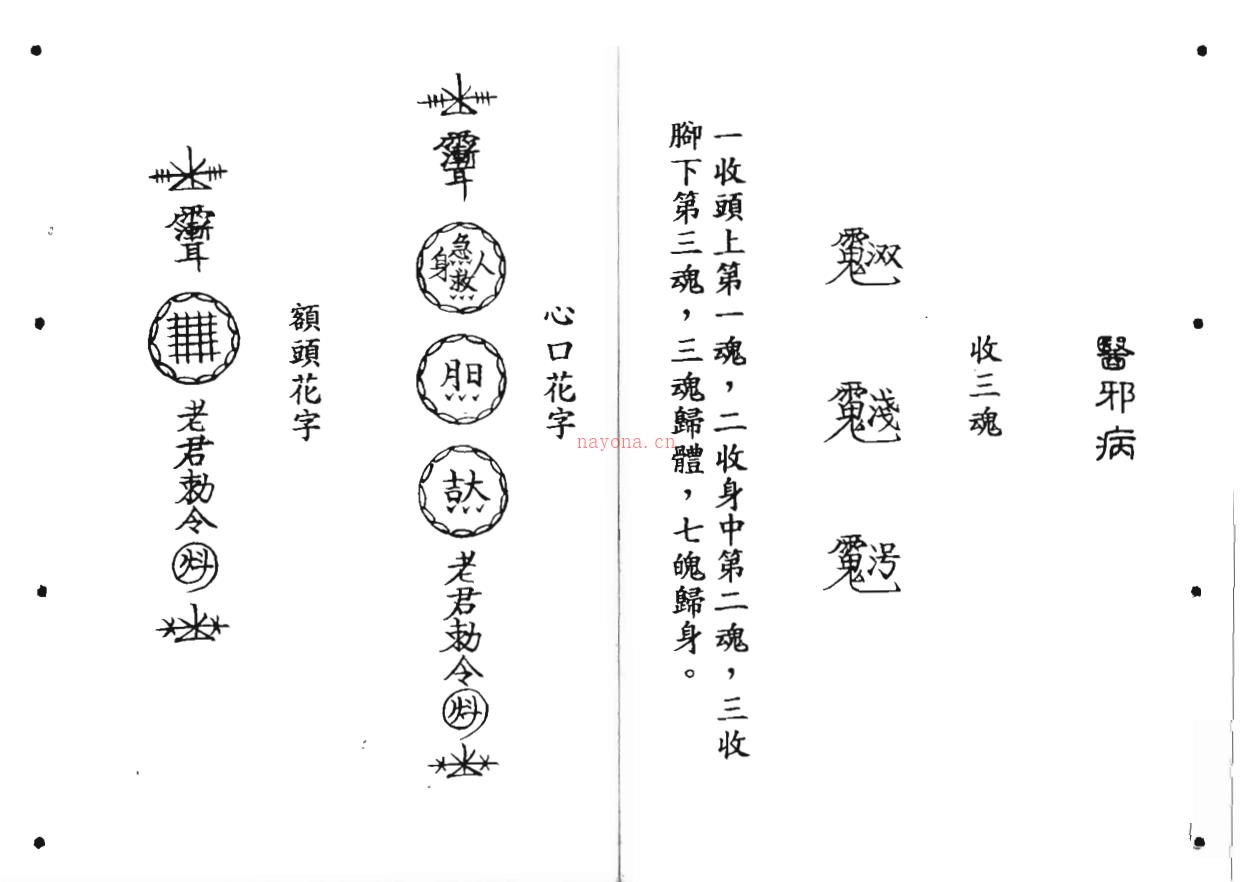 醫邪病
收三魂
一收頭上第一魂，二收身中第二魂，三收
腳下第三魂，三魂歸體，七魄歸身。
心口花字
急救
人
身
大
吉
老君勅令
額頭花字
老君勅令
nayona.cn